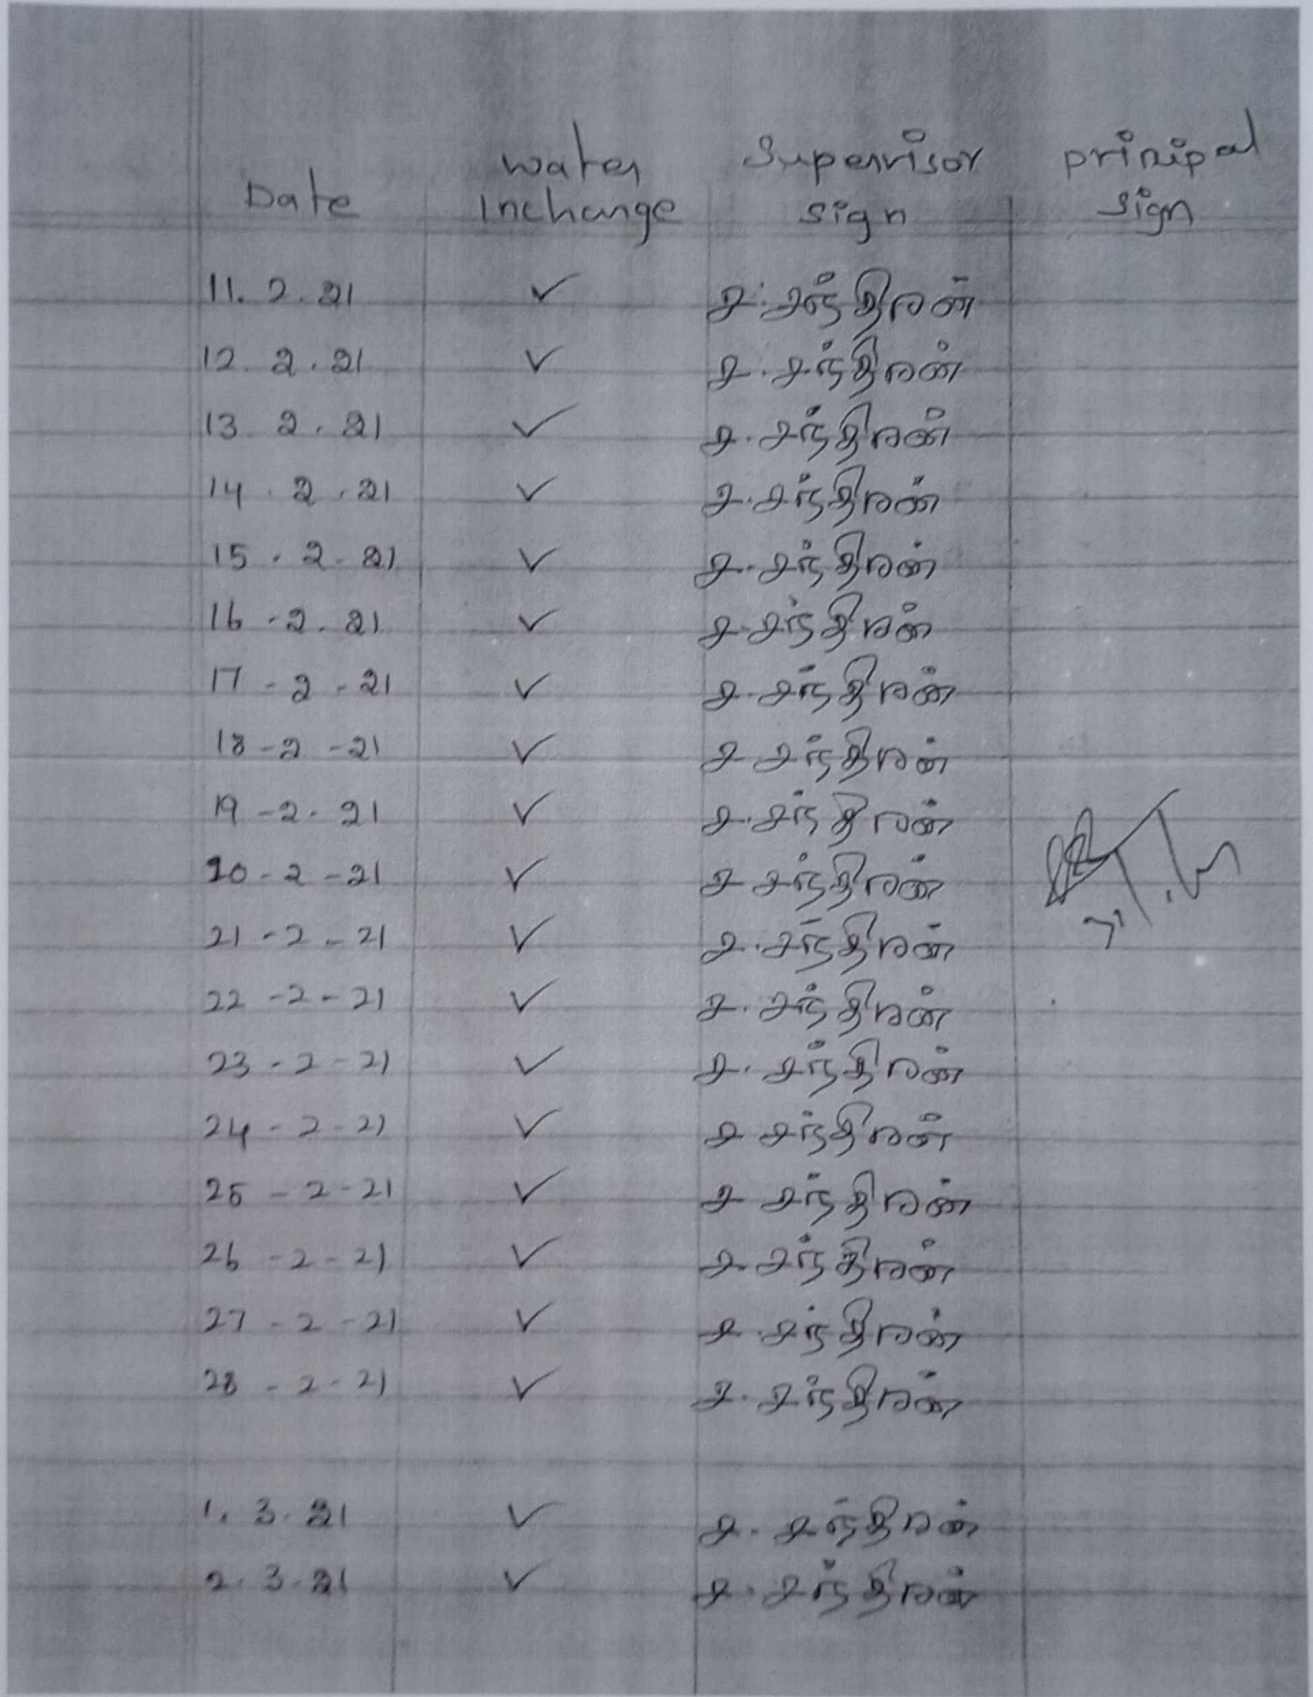 Date water Inchange Supervisor sign prinipal sign
11. 2. 21 ✓ ச. சந்திரன்
12. 2. 21 ✓ ச. சந்திரன்
13. 2. 21 ✓ ச. சந்திரன்
14. 2. 21 ✓ ச. சந்திரன்
15. 2. 21 ✓ ச. சந்திரன்
16. 2. 21 ✓ ச. சந்திரன்
17 - 2 - 21 ✓ ச. சந்திரன்
18 - 2 - 21 ✓ ச. சந்திரன்
19 - 2. 21 ✓ ச. சந்திரன்
20 - 2 - 21 ✓ ச சந்திரன்
21 - 2 - 21 ✓ ச. சந்திரன்
22 - 2 - 21 ✓ ச. சந்திரன்
23 - 2 - 21 ✓ ச. சந்திரன்
24 - 2 - 21 ✓ ச சந்திரன்
25 - 2 - 21 ✓ ச சந்திரன்
26 - 2 - 21 ✓ ச. சந்திரன்
27 - 2 - 21 ✓ ச. சந்திரன்
28 - 2 - 21 ✓ ச. சந்திரன்
1. 3. 21 ✓ ச. சந்திரன்
2. 3. 21 ✓ ச. சந்திரன்